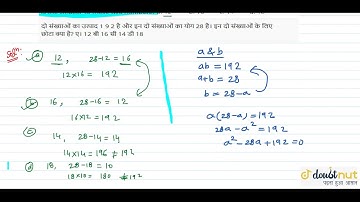 दो संख्याओं का उत्पाद 1 9 2 है और इन दो संख्याओं का योग 28 है। इन दो संख्याओं के लिए
छोटा क्या है? ए। 12 बी 16 सी 14 डी 18
a & b
ab = 192
a+b = 28
b = 28-a
a(28-a) = 192
28a - a² = 192
a² - 28a + 192 = 0
Soln.
a 12, 28-12 = 16
12×16 = 192
b 16, 28-16 = 12
16×12 = 192
c 14, 28-14 = 14
14×14 = 196 ≠ 192
d 18, 28-18 = 10
18×10 = 180 ≠ 192
doubtnut
पढ़ना हुआ आसान